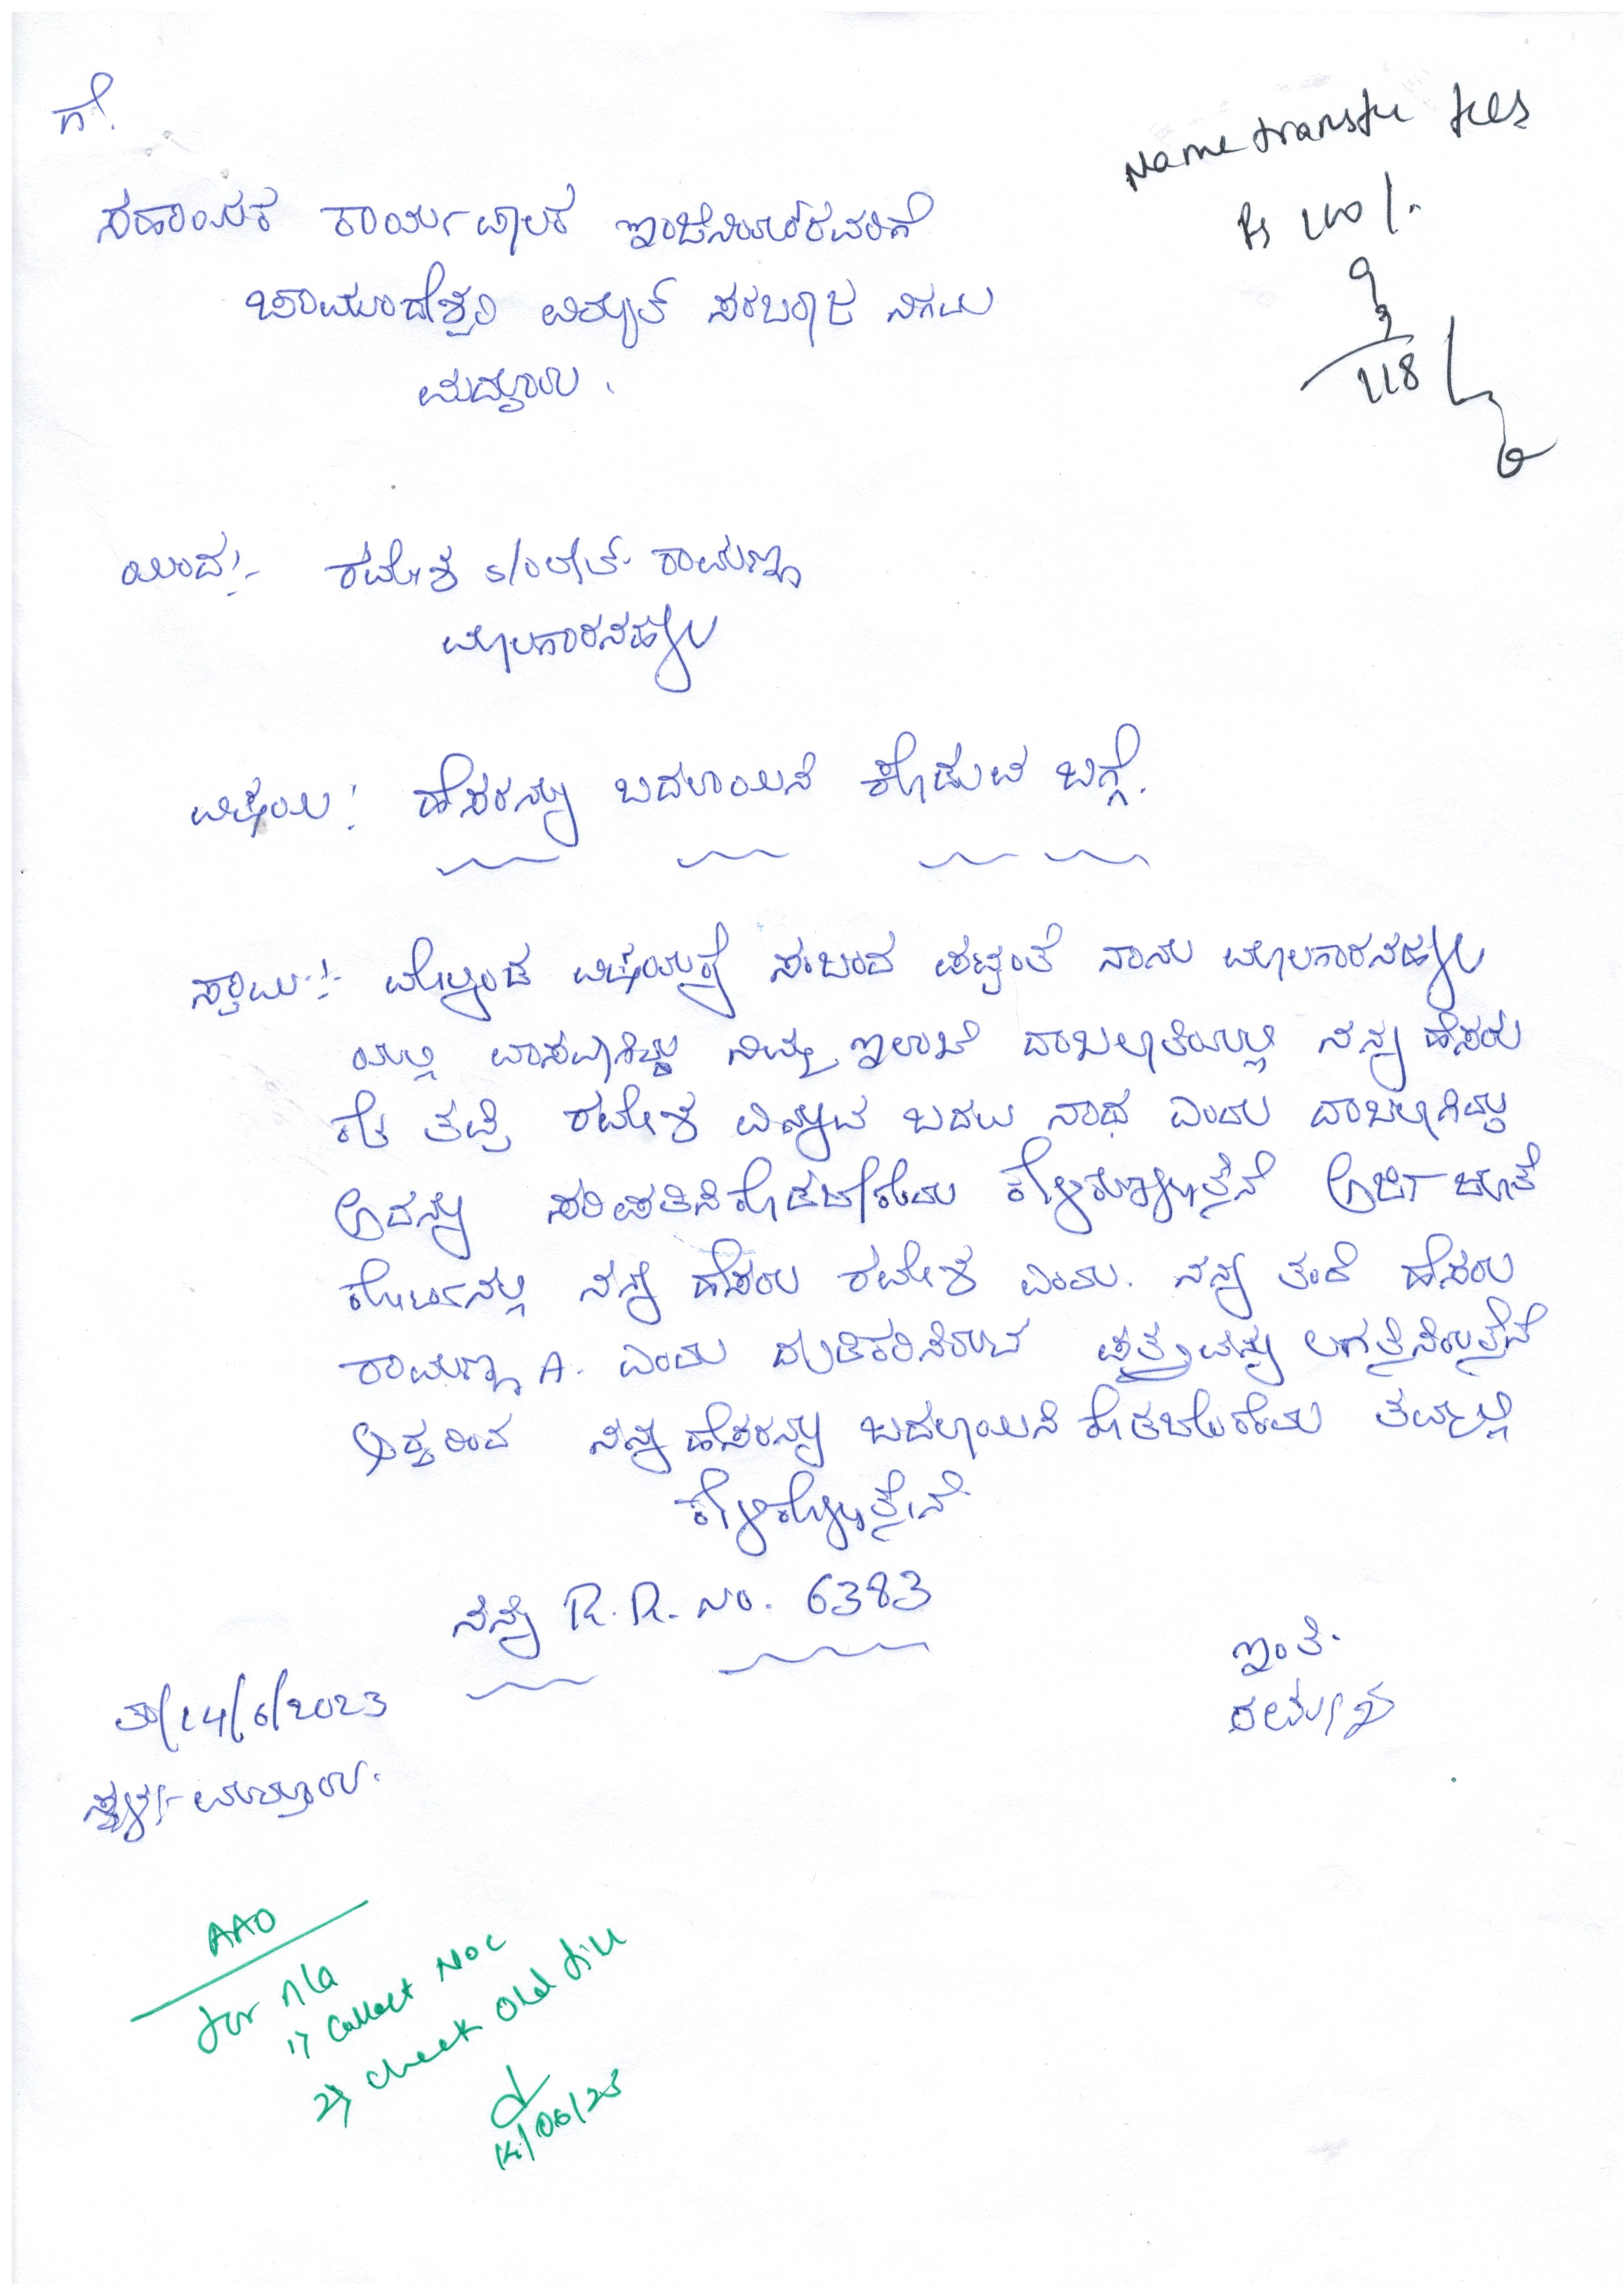 ಗೆ.
Name transfer fees
Rs 100/-
9
9
118/-
ಸಹಾಯಕ ಕಾರ್ಯಪಾಲಕ ಇಂಜಿನಿಯರ್‌ರವರಿಗೆ
ಚಾಮುಂಡೇಶ್ವರಿ ವಿದ್ಯುತ್ ಸರಬರಾಜು ನಿಗಮ
ಮದ್ದೂರು.
ಯಿಂದ:- ರಮೇಶ s/o ಲೇಟ್ ರಾಮಣ್ಣ
ಮಾಲಗಾರನಹಳ್ಳಿ
ವಿಷಯ: ಹೆಸರನ್ನು ಬದಲಾಯಿಸಿ ಕೊಡುವ ಬಗ್ಗೆ.
ಸ್ವಾಮಿ:- ಮೇಲ್ಕಂಡ ವಿಷಯಕ್ಕೆ ಸಂಬಂದ ಪಟ್ಟಂತೆ ನಾನು ಮಾಲಗಾರನಹಳ್ಳಿ
ಯಲ್ಲಿ ವಾಸವಾಗಿದ್ದು ನಿಮ್ಮ ಇಲಾಖೆ ದಾಖಲಾತಿಯಲ್ಲಿ ನನ್ನ ಹೆಸರು
ತಪ್ಪಿ ರಮೇಶ ಎನ್ನುವ ಬದಲು ನಾಥ ಎಂದು ದಾಖಲಾಗಿದ್ದು
ಅದನ್ನು ಸರಿಪಡಿಸಿಕೊಡಬೇಕೆಂದು ಕೇಳಿಕೊಳ್ಳುತ್ತೇನೆ ಅರ್ಜಿ ಜೊತೆ
ಕೋರ್ಟಿನಲ್ಲಿ ನನ್ನ ಹೆಸರು ರಮೇಶ ಎಂದು. ನನ್ನ ತಂದೆ ಹೆಸರು
ರಾಮಣ್ಣ A. ಎಂದು ದೃಡಿಕರಿಸಿರುವ ಪತ್ರವನ್ನು ಲಗತ್ತಿಸಿರುತ್ತೇನೆ
ಆದ್ದರಿಂದ ನನ್ನ ಹೆಸರನ್ನು ಬದಲಾಯಿಸಿ ಕೊಡಬೇಕೆಂದು ತಮ್ಮಲ್ಲಿ
ಕೇಳಿಕೊಳ್ಳುತ್ತೇನೆ.
ನನ್ನ R.R. No. 6383
ಇಂತಿ.
ರಮೇಶ
ತಾ/14/6/2023
ಸ್ಥಳ:- ಮದ್ದೂರು.
AAO
for n/a
1) Collect NOC
2) check old file
14/06/23